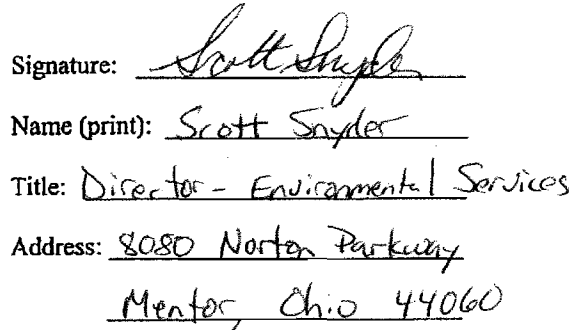 Signature: Scott Snyder
Name (print): Scott Snyder
Title: Director - Environmental Services
Address: 8080 Norton Parkway
Mentor, Ohio 44060